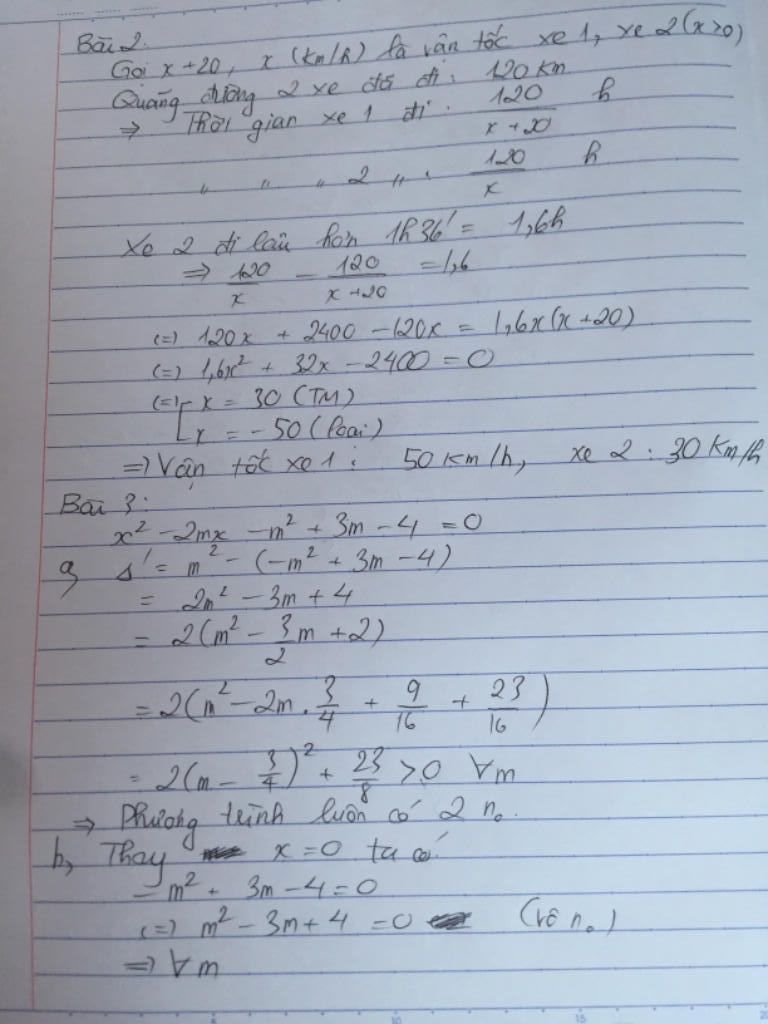 Bài 2.
Gọi x+20, x (km/h) là vận tốc xe 1, xe 2 (x>0)
Quãng đường 2 xe đã đi: 120 km
⇒ Thời gian xe 1 đi: 120/(x+20) h
" " " 2 ". 120/x h
Xe 2 đi lâu hơn 1h36' = 1,6h
⇒ 120/x - 120/(x+20) = 1,6
(=) 120x + 2400 - 120x = 1,6x(x+20)
(=) 1,6x² + 32x - 2400 = 0
(=) [ x = 30 (TM)
x = -50 (loại)
⇒ Vận tốc xe 1: 50 km/h, xe 2: 30 km/h
Bài 3:
x² - 2mx - m² + 3m - 4 = 0
a, Δ' = m² - (-m² + 3m - 4)
= 2m² - 3m + 4
= 2(m² - 3/2 m + 2)
= 2(m² - 2m . 3/4 + 9/16 + 23/16)
= 2(m - 3/4)² + 23/8 > 0 ∀m
⇒ Phương trình luôn có 2 n₀
b, Thay x = 0 ta có
-m² + 3m - 4 = 0
(=) m² - 3m + 4 = 0 (vô n₀)
⇒ ∀m
5 10 15 20